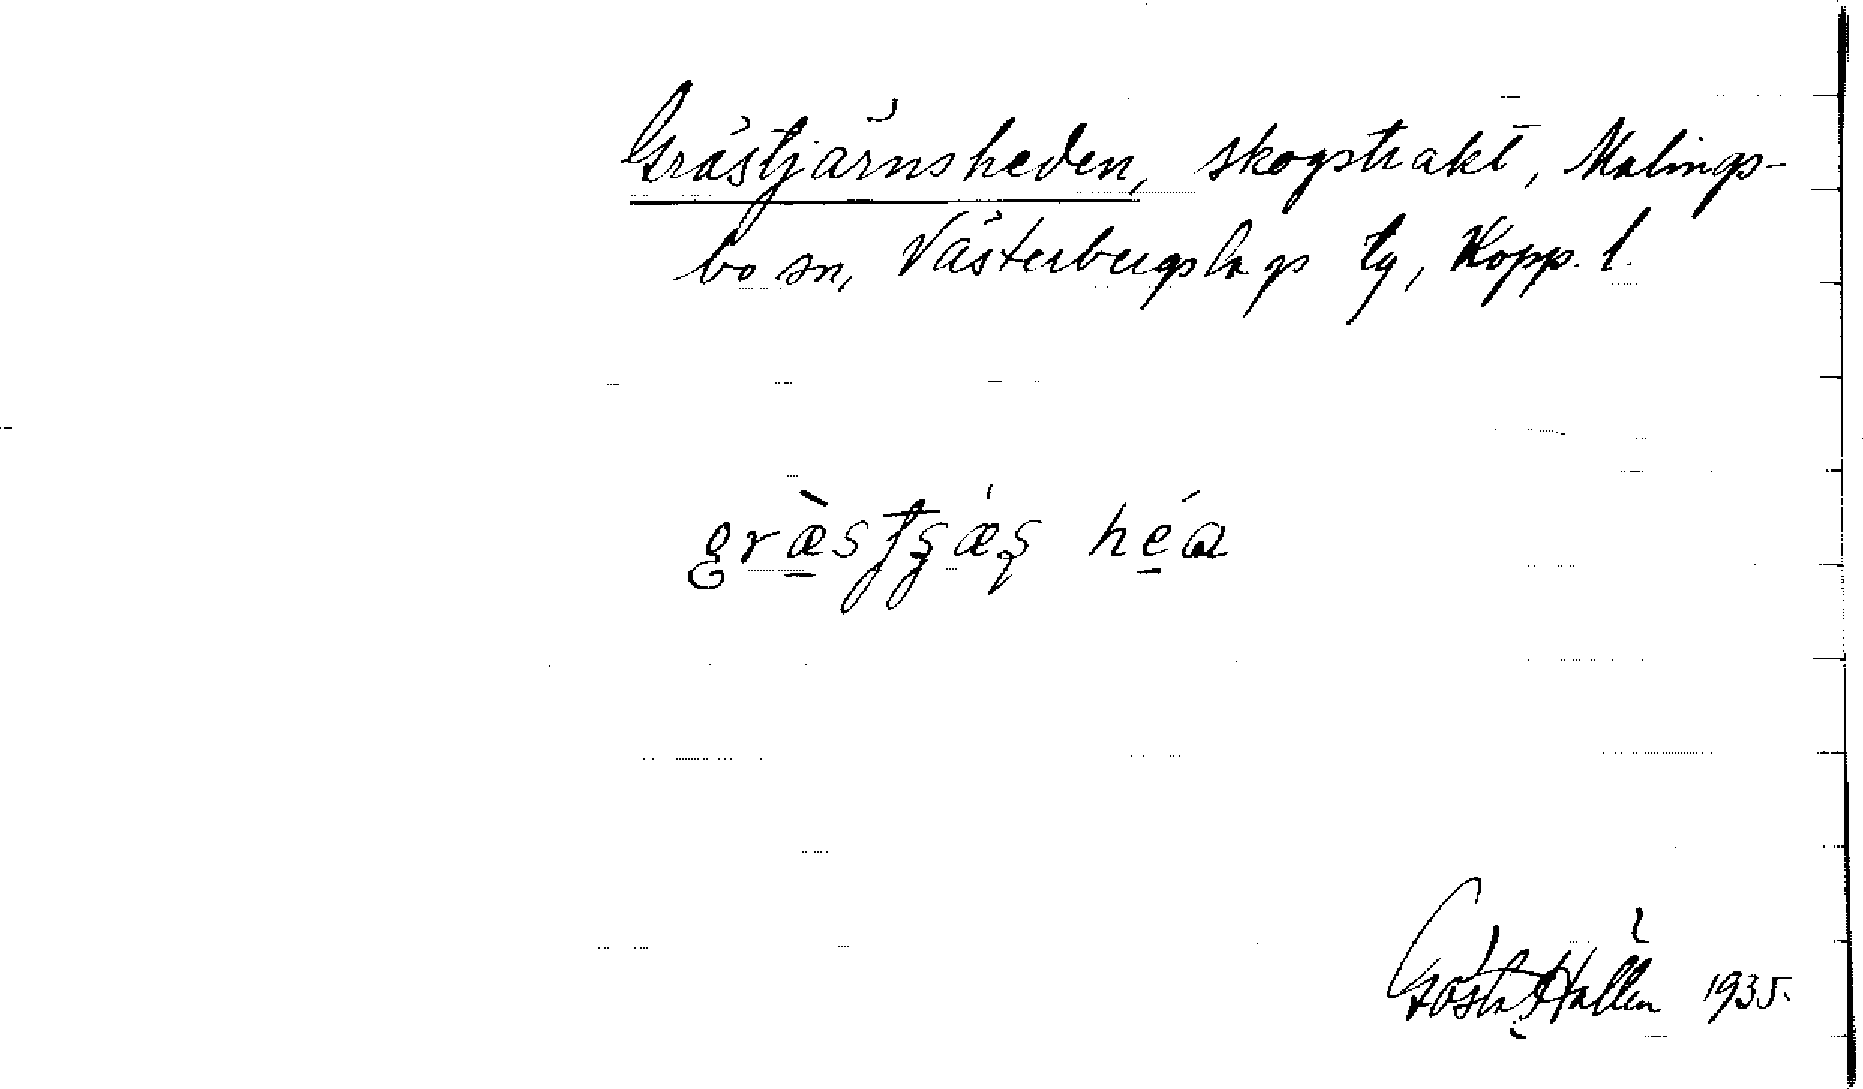 Grästjärnsheden, skogstrakt, Malings-
bo sn, Västerbergslags tg, Kopp. l.
héa
Gösta Hallén 1935.